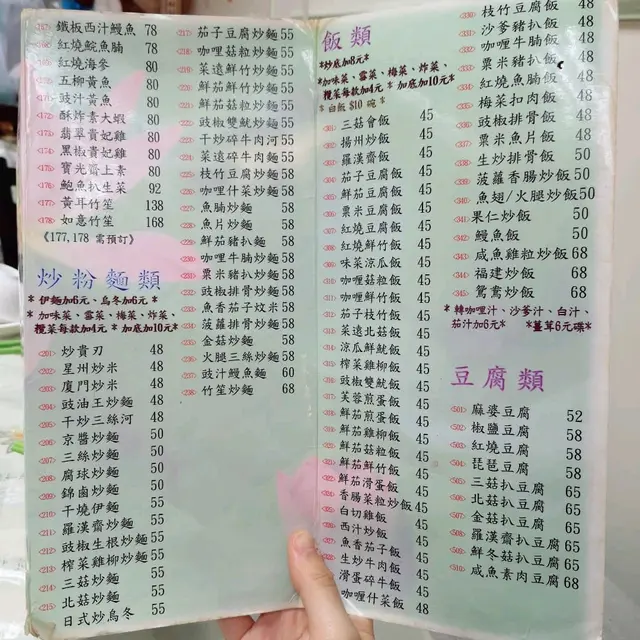 鐵板西汁鰻魚 78
紅燒鯇魚腩 78
紅燒海參 80
五柳黃魚 80
豉汁黃魚 80
<172> 酥炸素大蝦 80
<173> 翡翠貴妃雞 80
<174> 黑椒貴妃雞 80
<175> 寶光齋上素 80
<176> 鮑魚扒生菜 92
<177> 黃耳竹笙 138
<178> 如意竹笙 168
《177,178 需預訂》
炒粉麵類
* 伊麵加6元、烏冬加6元 *
* 加咪菜、雪菜、梅菜、炸菜、
欖菜每款加4元 * 加底加10元*
<201> 炒貴刁 48
<202> 星州炒米 48
<203> 廈門炒米 48
<204> 豉油王炒麵 48
<205> 干炒三絲河 48
<206> 京醬炒麵 50
<207> 三絲炒麵 50
<208> 腐球炒麵 50
<209> 錦鹵炒麵 50
<210> 干燒伊麵 55
<211> 羅漢齋炒麵 55
<212> 豉椒生根炒麵 55
<213> 榨菜雞柳炒麵 55
<214> 三菇炒麵 55
<215> 北菇炒麵 55
日式炒烏冬 55
<217> 茄子豆腐炒麵 55
<218> 咖哩菇粒炒麵 55
<219> 菜遠鮮竹炒麵 55
<220> 鮮茄鮮竹炒麵 55
<221> 鮮茄菇粒炒麵 55
<222> 豉椒雙魷炒麵 55
<223> 干炒碎牛肉河 55
<224> 菜遠碎牛肉麵 55
<225> 枝竹豆腐炒麵 58
<226> 咖哩什菜炒麵 58
<227> 魚腩炒麵 58
<228> 魚片炒麵 58
<229> 鮮茄豬扒麵 58
<230> 咖哩牛腩炒麵 58
<231> 粟米豬扒炒麵 58
<232> 豉椒排骨炒麵 58
<233> 魚香茄子炆米 58
<234> 菠蘿排骨炒麵 58
<235> 金菇炒麵 58
<236> 火腿三絲炒麵 58
<237> 豉汁鰻魚麵 60
<238> 竹笙炒麵 68
飯類
*炒底加8元*
*加咪菜、雪菜、梅菜、炸菜、
欖菜每款加4元 * 加底加10元*
* 白飯 $10 碗 *
<301> 三菇會飯 45
<302> 揚州炒飯 45
<303> 羅漢齋飯 45
<304> 茄子豆腐飯 45
<305> 鮮茄豆腐飯 45
<306> 粟米豆腐飯 45
<307> 紅燒豆腐飯 45
<308> 紅燒鮮竹飯 45
<309> 味菜涼瓜飯 45
<310> 咖喱菇粒飯 45
<311> 咖喱鮮竹飯 45
<312> 茄子枝竹飯 45
<313> 菜遠北菇飯 45
<314> 涼瓜鮮魷飯 45
<315> 榨菜雞柳飯 45
<316> 豉椒雙魷飯 45
<317> 芙蓉煎蛋飯 45
<318> 鮮茄煎蛋飯 45
<319> 鮮茄雞柳飯 45
<320> 鮮茄菇粒飯 45
<321> 鮮茄鮮竹飯 45
<322> 鮮茄滑蛋飯 45
<324> 香腸菜粒炒飯 45
白切雞飯 45
西汁炒飯 45
<327> 魚香茄子飯 45
生炒牛肉飯 45
滑蛋碎牛飯 45
咖喱什菜飯 48
<330> 枝竹豆腐飯 48
<331> 沙爹豬扒飯 48
<332> 咖喱牛腩飯 48
<333> 粟米豬扒飯 48
<334> 紅燒魚腩飯 48
<335> 梅菜扣肉飯 48
<336> 豉椒排骨飯 48
<337> 粟米魚片飯 48
<338> 生炒排骨飯 50
<339> 菠蘿香腸炒飯 50
<340> 魚翅/火腿炒飯 50
<341> 果仁炒飯 50
<342> 鰻魚飯 50
<343> 咸魚雞粒炒飯 68
<344> 福建炒飯 68
<345> 鴛鴦炒飯 68
* 轉咖哩汁、沙爹汁、白汁、
茄汁加6元* *薑茸6元碟*
豆腐類
<501> 麻婆豆腐 52
<502> 椒鹽豆腐 58
<503> 紅燒豆腐 58
<504> 琵琶豆腐 58
<505> 三菇扒豆腐 65
<506> 北菇扒豆腐 65
<507> 金菇扒豆腐 65
<508> 羅漢齋扒豆腐 65
<509> 鮮冬菇扒豆腐 65
<510> 咸魚素肉豆腐 68